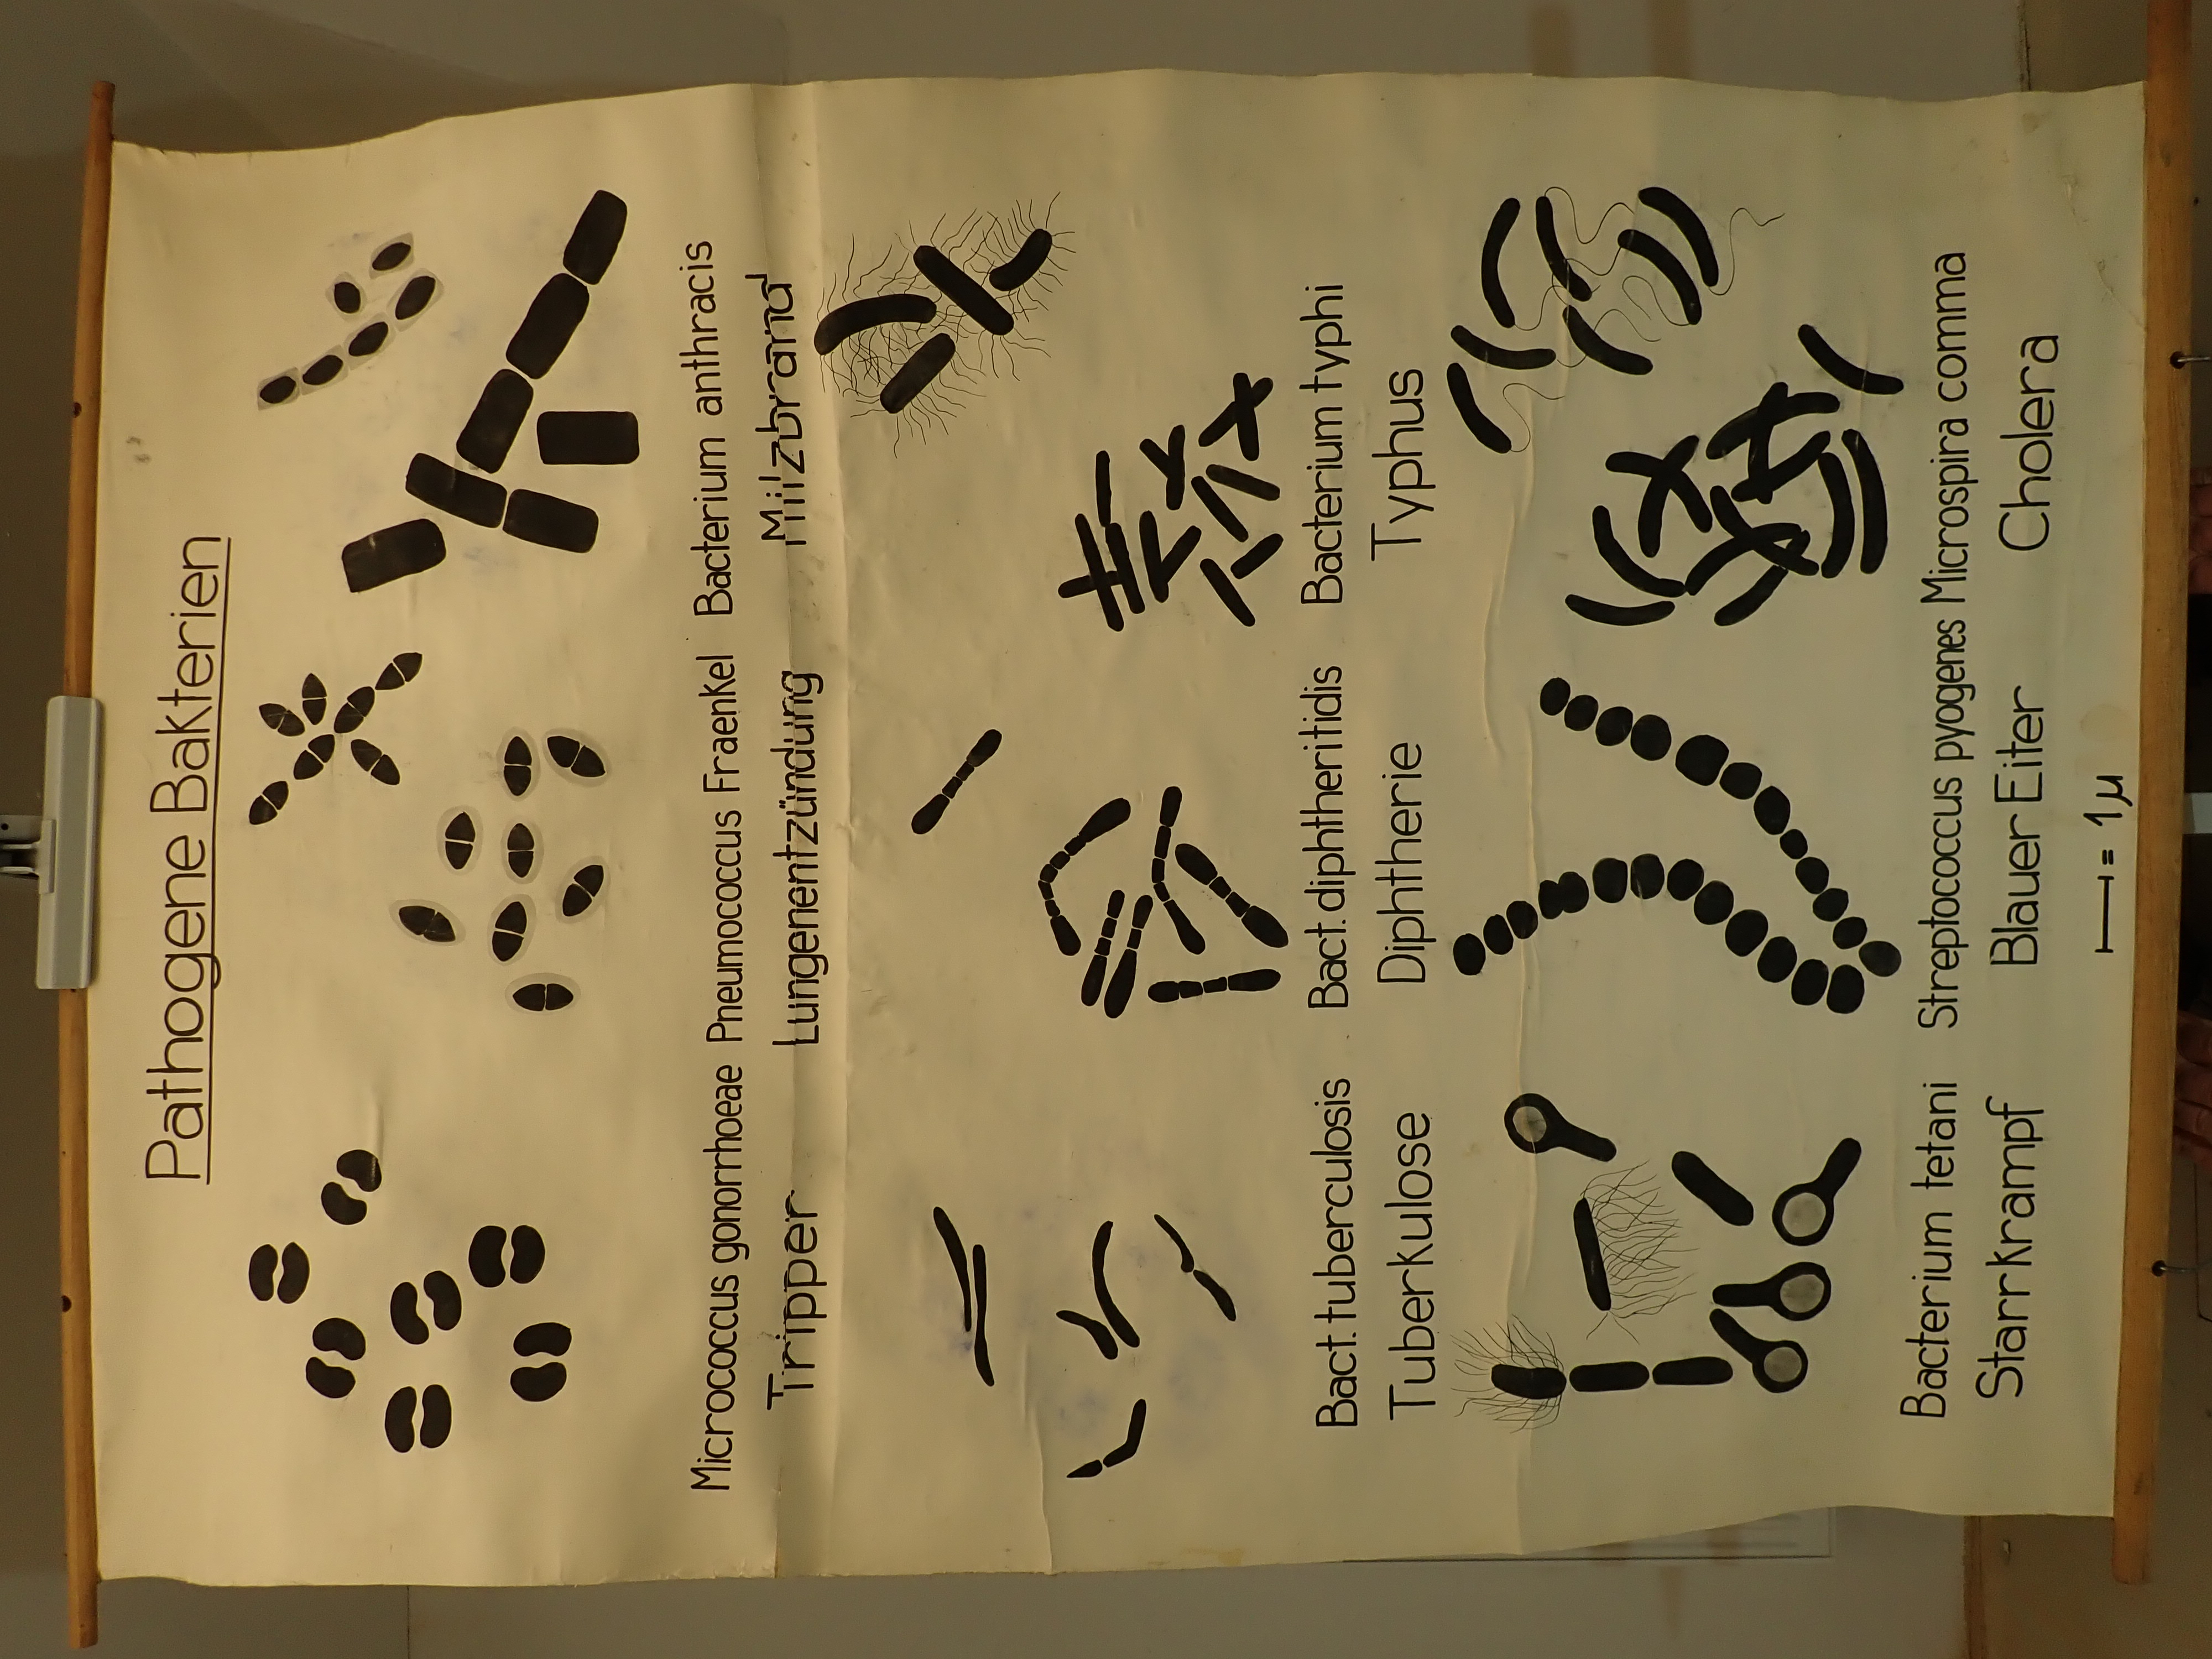 Pathogene Bakterien
Micrococcus gonorrhoeae Pneumococcus Fraenkel Bacterium anthracis
Tripper Lungenentzündung Milzbrand
Bact. tuberculosis Bact. diphtheritidis Bacterium typhi
Tuberkulose Diphtherie Typhus
Bacterium tetani Streptococcus pyogenes Microspira comma
Starrkrampf Blauer Eiter Cholera
= 1µ